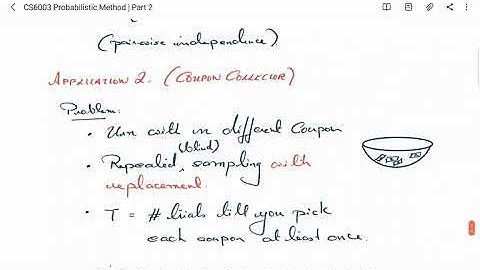 CS6003 Probabilistic Method | Part 2
(pairwise independence).
APPLICATION 2. (COUPON COLLECTOR)
Problem:
• Urn with n different Coupon
(blind)
• Repeated, sampling with
replacement.
• T = # trials till you pick
each coupon at least once.